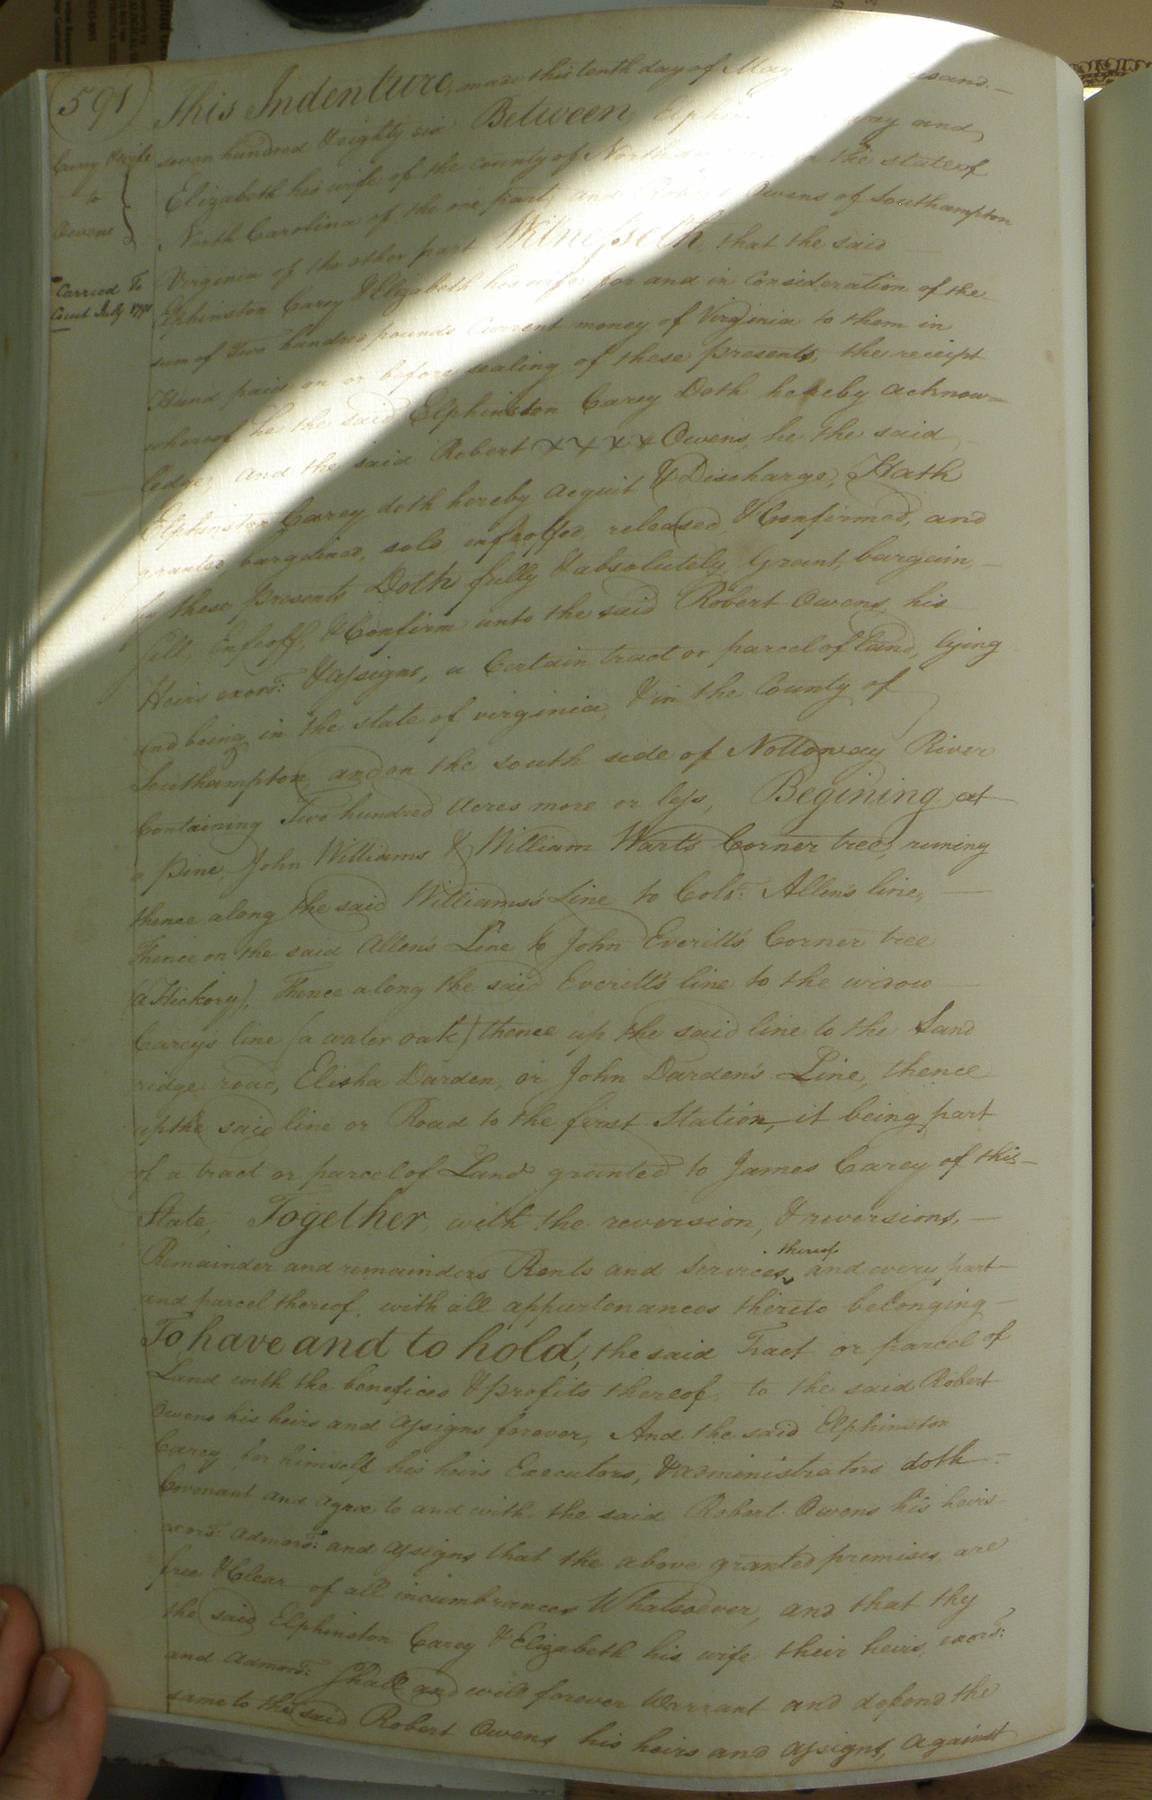 591
Carey & wife
to
Owens
Carried To
Court July 1791
This Indenture, made this tenth day of May
seven hundred & eighty six Between Elphin and
Elizabeth his wife of the county of North in the state of
North Carolina of the one part, and Robert Owens of Southampton
Virginia of the other part Witnesseth, that the said
Elphinston Carey & Elizabeth his wife, for and in Consideration of the
sum of Two hundred pounds Current money of Virginia to them in
Hand paid on or before sealing of these presents, the receipt
whereof he the said Elphinston Carey Doth hereby acknow=
ledge, and the said Robert x x x x Owens, he the said
Elphinston Carey doth hereby acquit & Discharge, Hath
granted bargained, sold enfeoffed, released & Confirmed, and
by these presents Doth fully & absolutely, Grant, bargain,
Sell Enfeoff, & Confirm unto the said Robert Owens, his
Heirs exors: & assigns, a Certain tract or parcel of land, lying
and being in the state of virginia & in the County of
Southampton and on the south side of Nottoway River
Containing Two hundred acres more or less, Begining at
a pine, John Williams & William Wart's Corner tree, runing
thence along the said Williams's Line to Colo: Allen's line,
Thence on the said Allen's Line to John Everitt's Corner tree
(a Hickory). Thence along the said Everitt's line to the widow
Carey's line (a water oak) thence up the said line to the Sand
ridge road, Elisha Darden, or John Darden's Line, thence
up the said line or Road to the first Station, it being part
of a tract or parcel of Land granted to James Carey of this
State, Together with the reversion, & reversions,
Remainder and remainders Rents and Services thereof, and every part
and parcel thereof, with all appurtenances thereto belonging
To have and to hold, the said Tract or parcel of
Land with the benefices & profits thereof, to the said Robert
Owens his heirs and assigns forever, And the said Elphinston
Carey for himself his heirs Executors, & administrators doth
Covenant and agree to and with the said Robert Owens his heirs
exors: admors: and assigns that the above granted premises, are
free & Clear of all incumbrances Whatsoever, and that thy
the said Elphinston Carey & Elizabeth his wife their heirs, exors:
and admors: Shall and will forever Warrant and defend the
same to the said Robert Owens his heirs and assigns, against